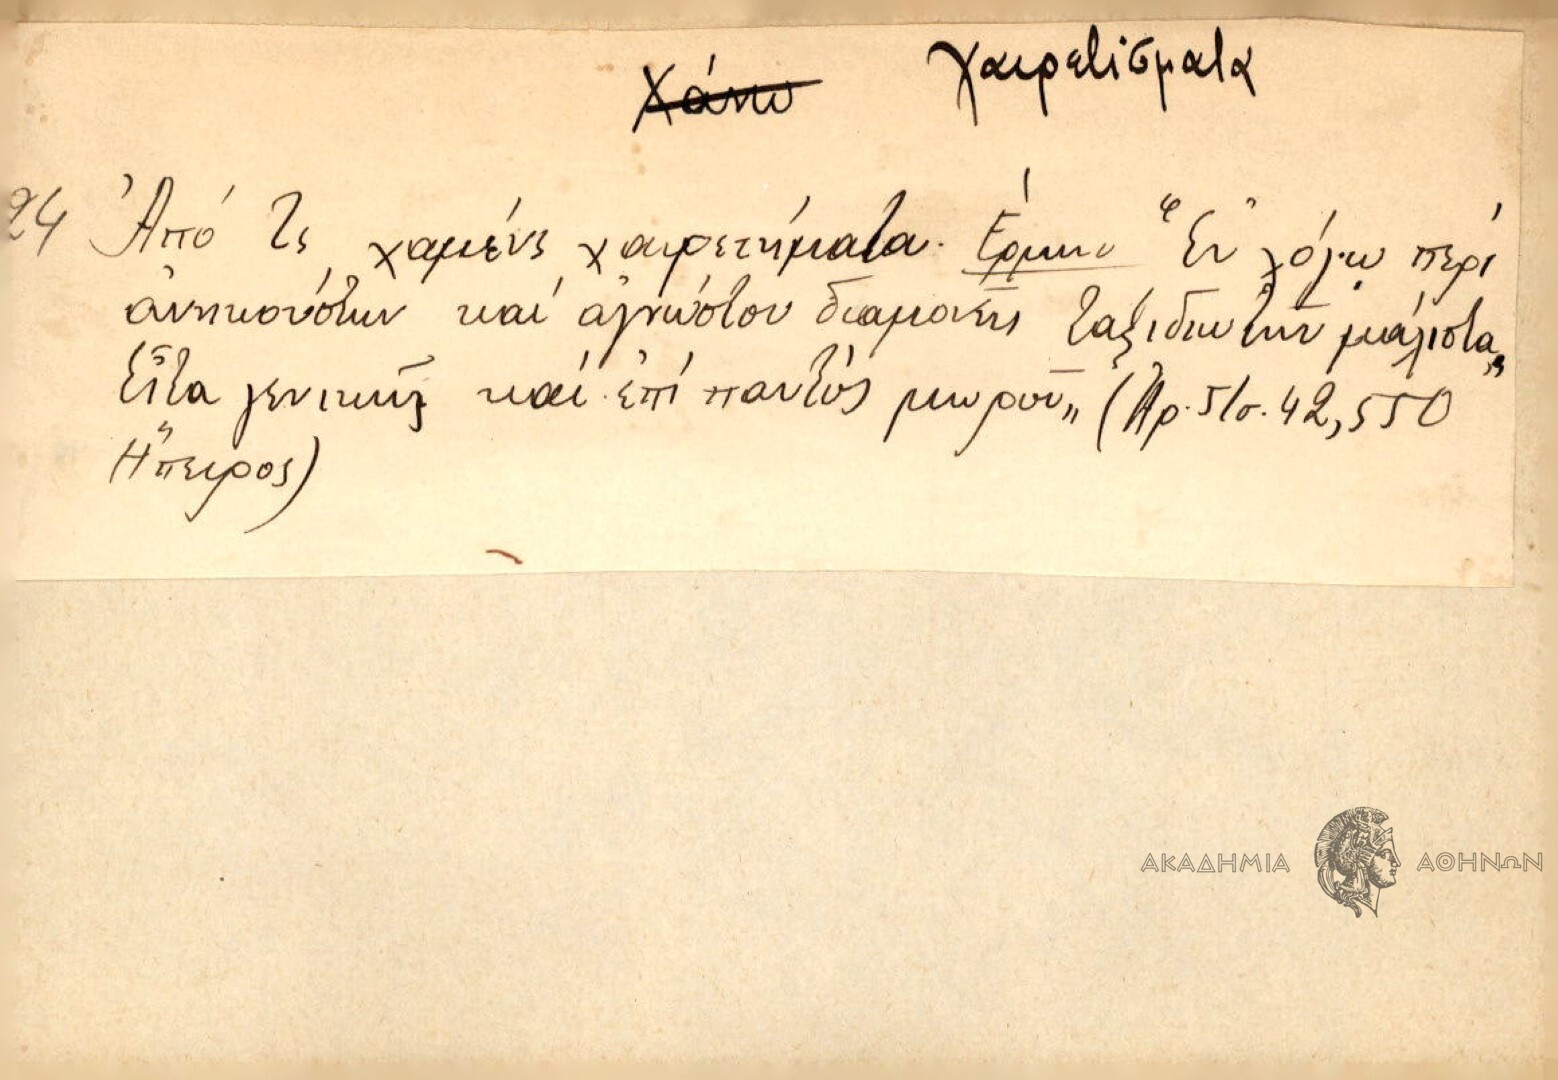 Χάνω χαιρετίσματα
24 Ἀπό τς χαμένς χαιρετήματα. Ἑρμην "Ἐν λόγῳ περί
ἀνηκούστων καί ἀγνώστου διαμονῆς ταξιδιωτῶν μάλιστα,
εἶτα γενικῶς καί ἐπί παντός μωροῦ" (Ἀρ. Στο. 42, 550
Ἤπειρος)
ΑΚΑΔΗΜΙΑ ΑΘΗΝΩΝ